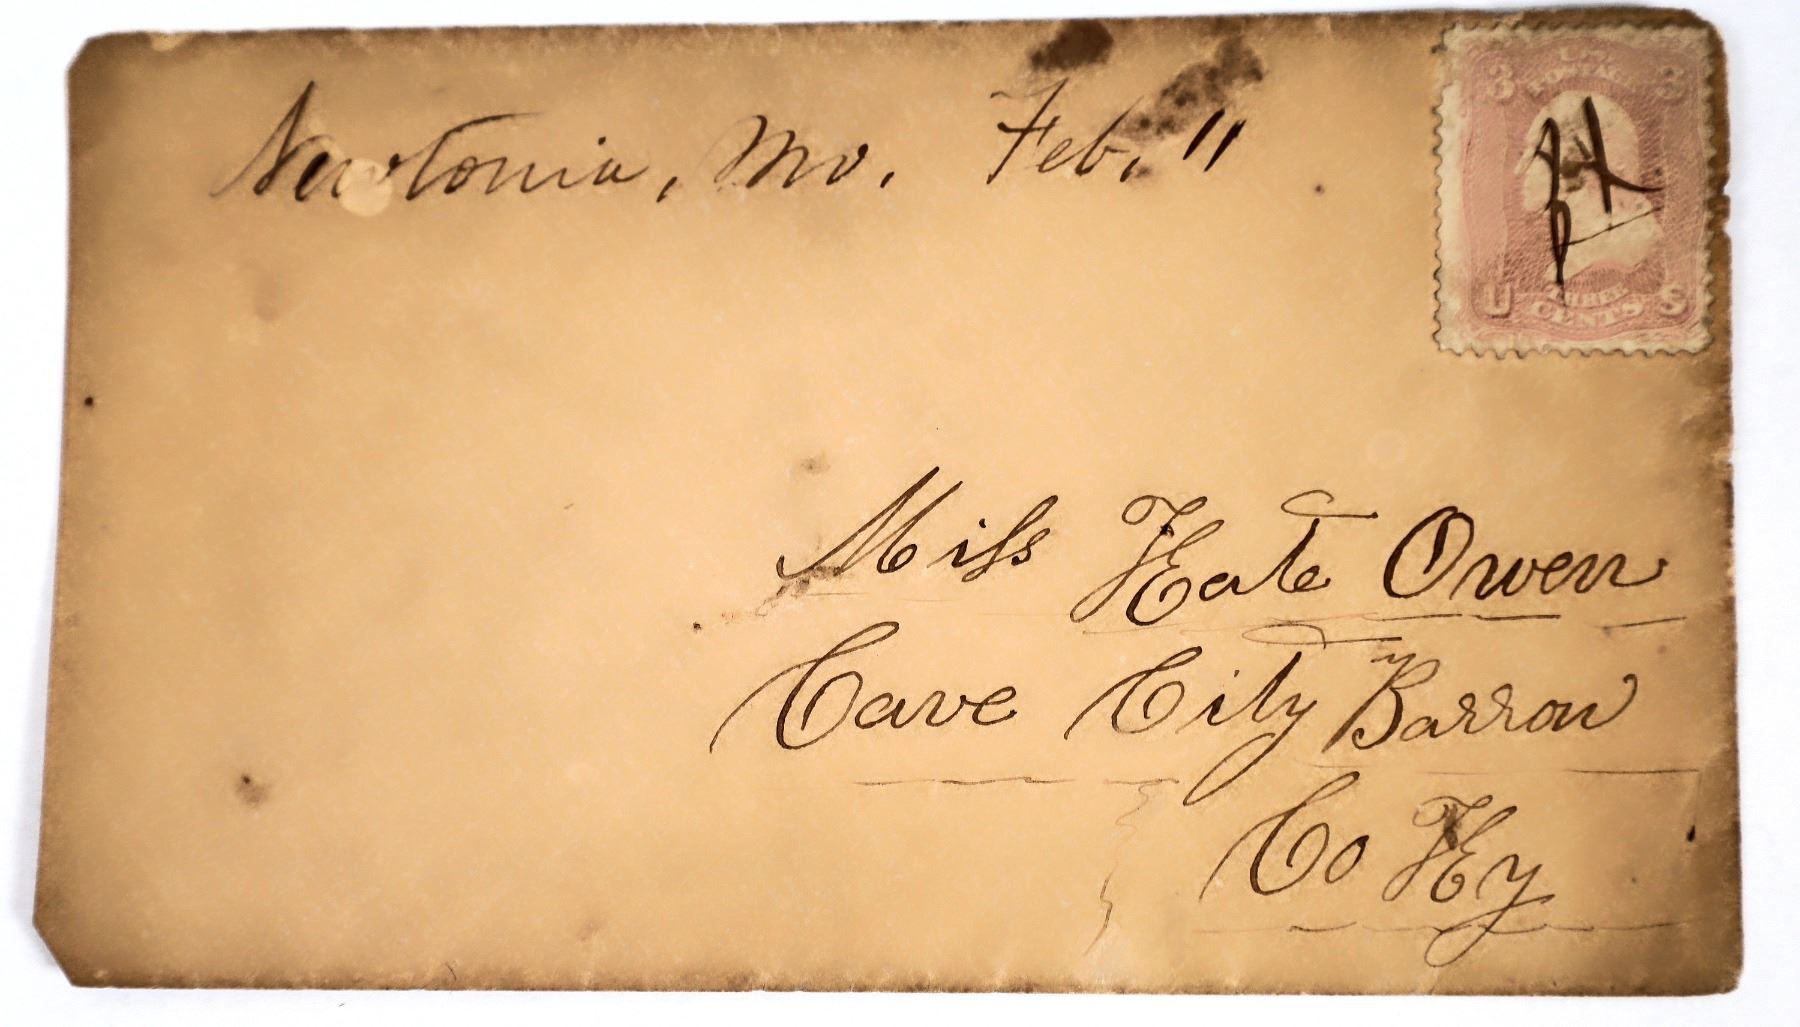 Newtonia, Mo. Feb. 11
3 U.S. POSTAGE 3
U THREE CENTS S
Miss Kate Owen
Cave City Barron
Co Ky